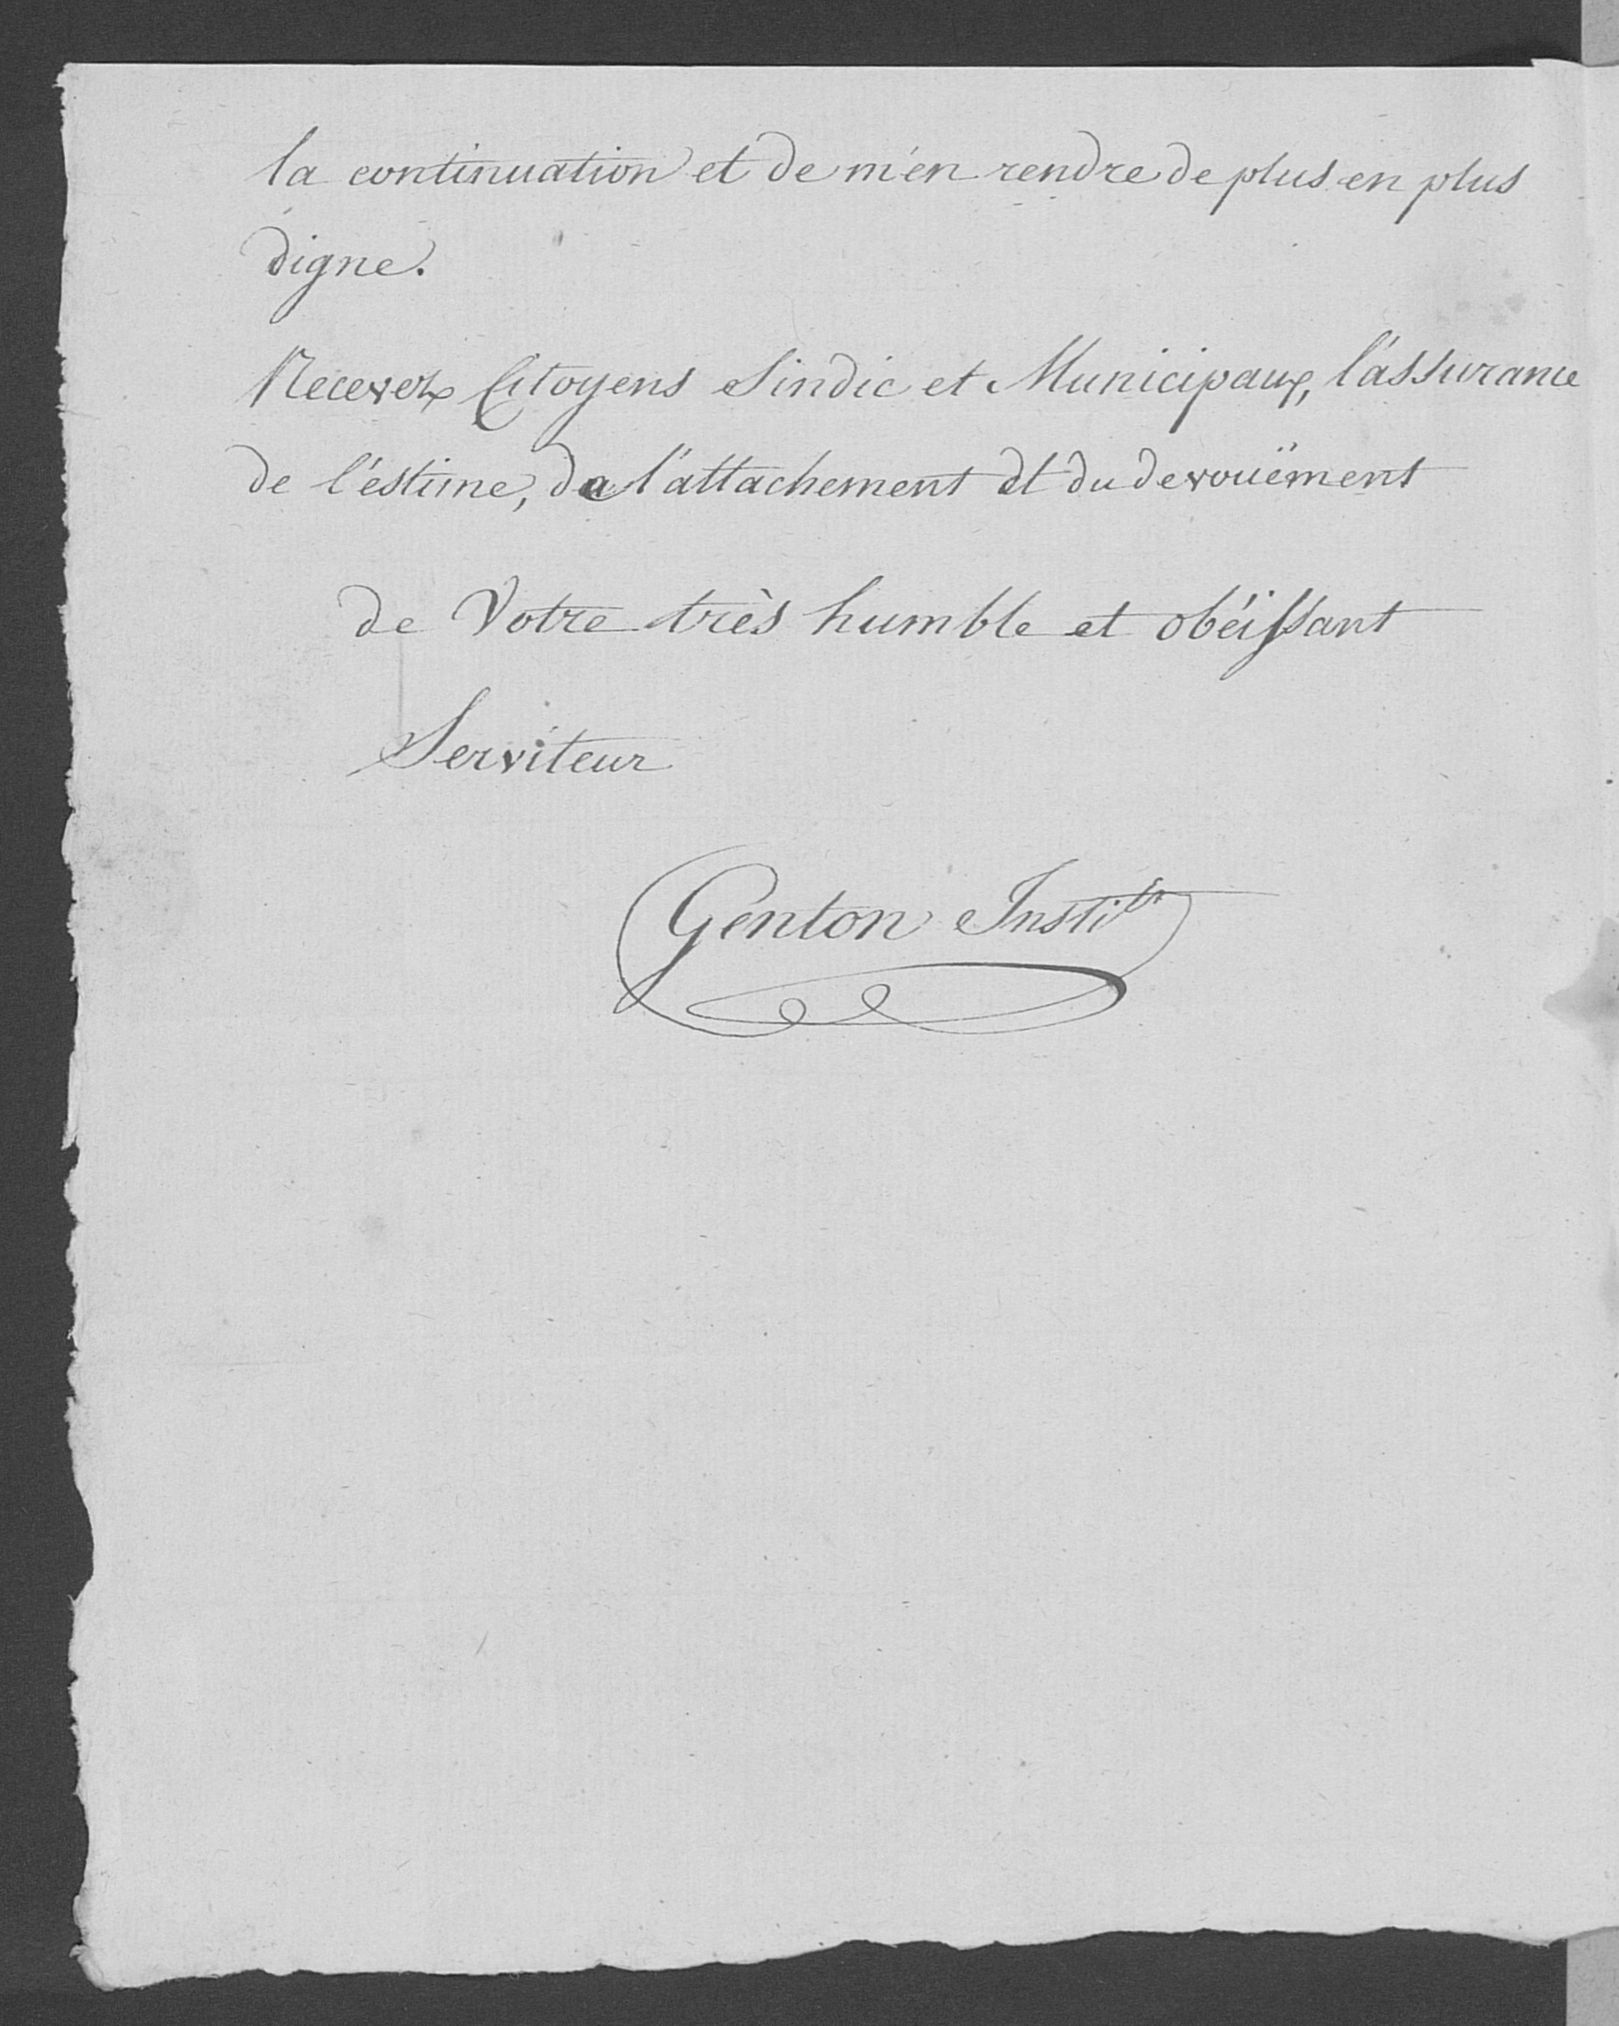 la continuation et de m'en rendre de plus en plus
digne.
Recevez Citoyens Sindic et Municipaux, l'assurance
de l'éstime, de l'attachement et du devouëment
de Votre très humble et obéissant
Serviteur
Genton Instit.r